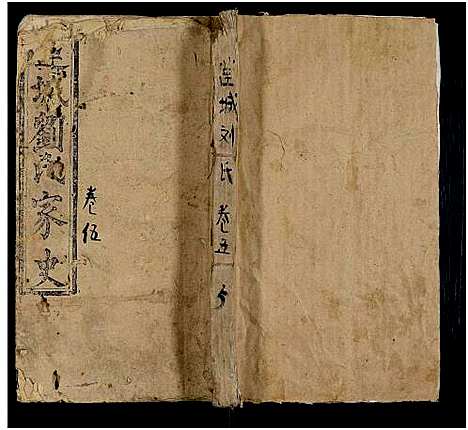 城劉氏家史
卷伍
城刘氏 卷五 5